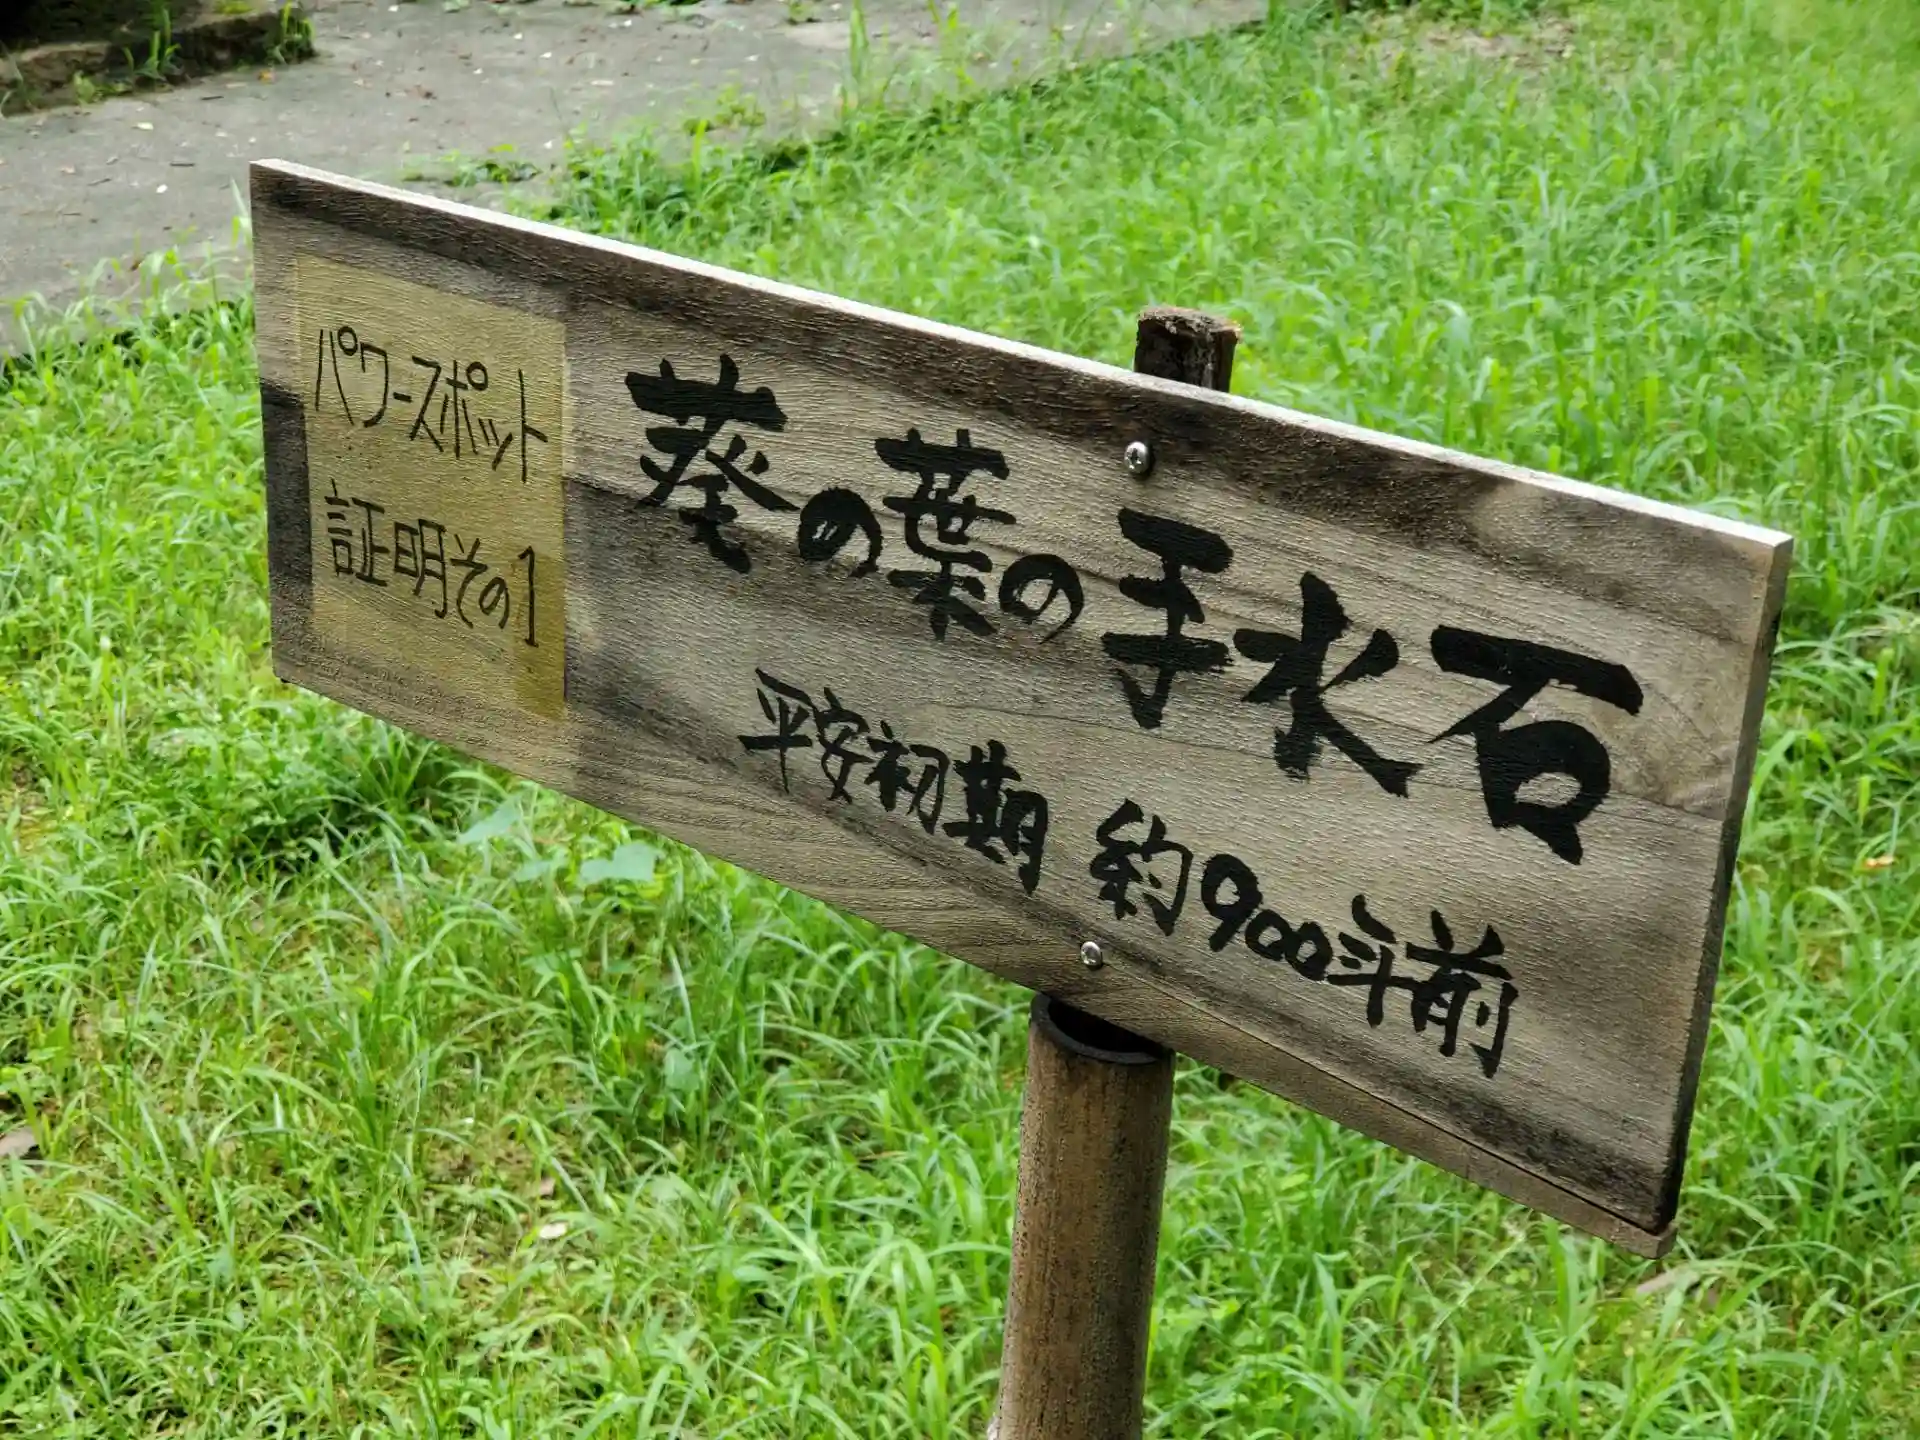 パワースポット
証明その1
葵の葉の手水石
平安初期 約900年前